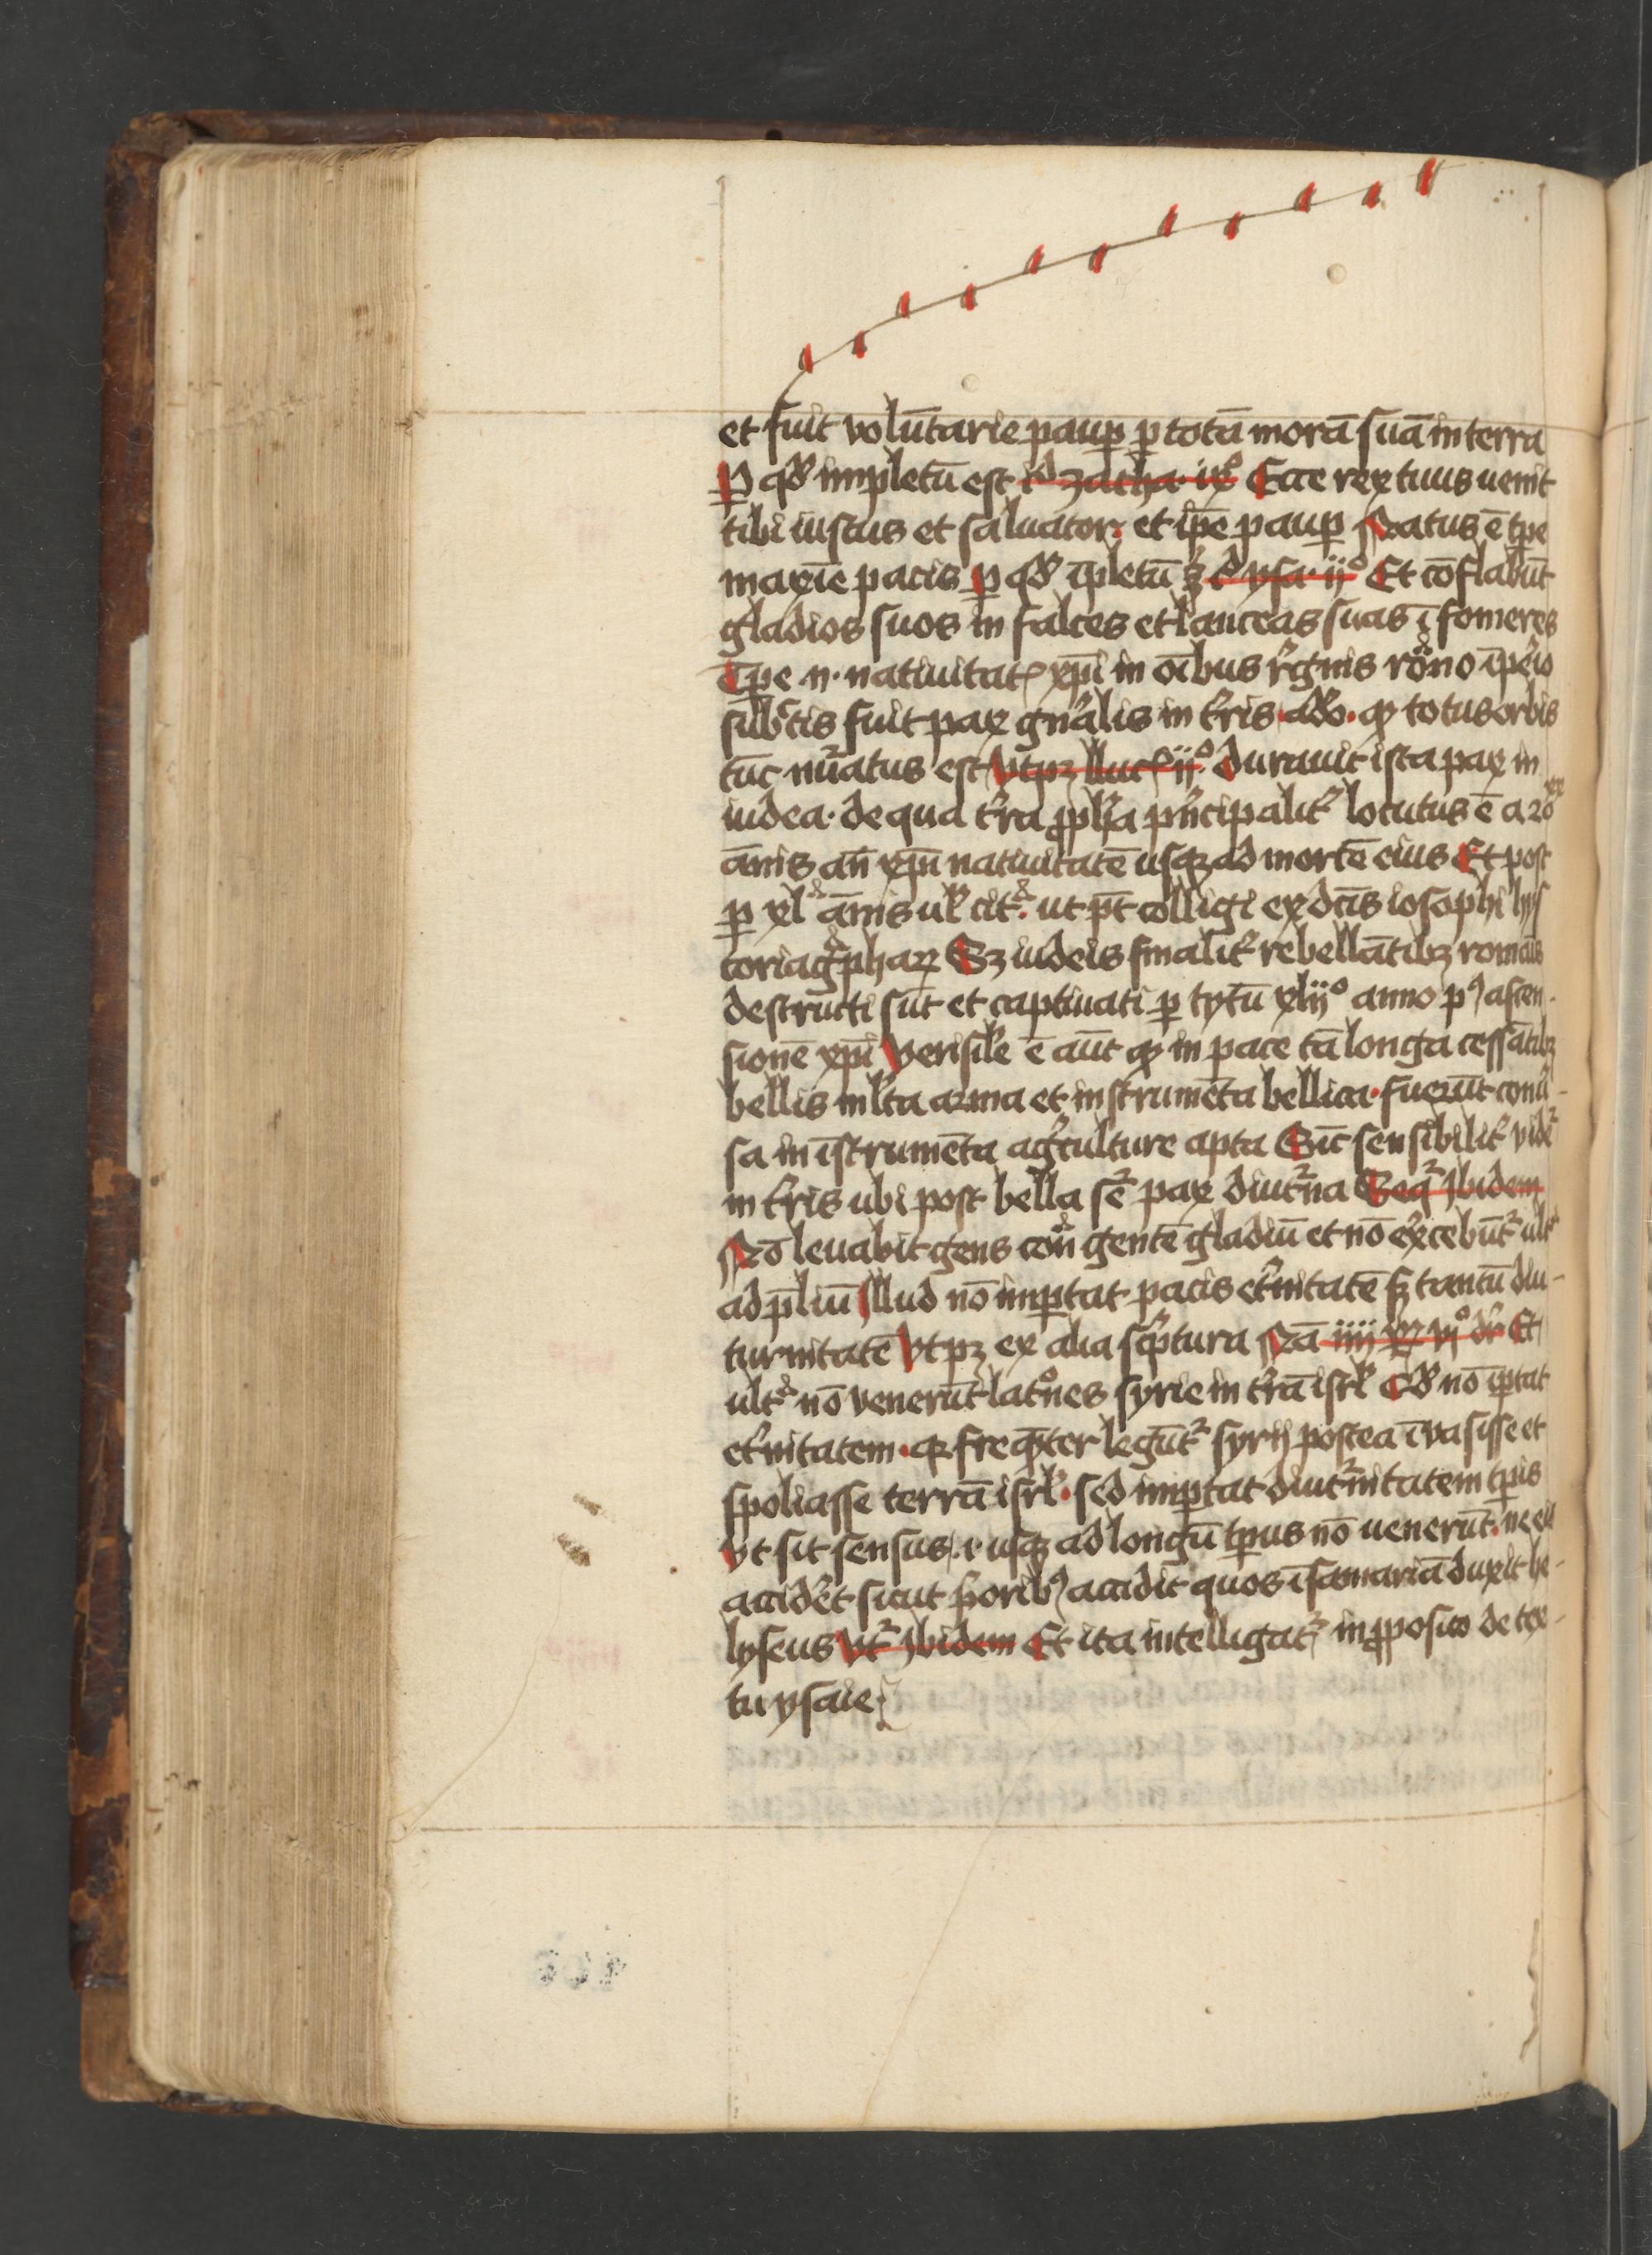 et fuit volūtarie paup̱ p̱ totā morā suā in terra
P̱ qḋ impletū est id zacha· ixº Ecce rex tuus uenit
tibi iustus et saluator· et ip̄e paup̱ Natus ē tp̄e
maxīe pacis P̱ qḋ īpletū ꝫ ysa· ijº Et cōflabūt
gladios suos in falces et lanceas suas ī fomeres
Tp̄e n· natiuitatꝭ xp̄i in oībus regnis rōno īpeio
subctis fuit pax gn̄alis in t͛ris ado· ꝙ totus orbis
tūc nūatus est Vtpꝫ lucꝭ ijº· durauit ista pax in
iudea· de qua t͛ra ꝓph͛a pn̄cipalit͛ locutus ē a 20
ānis an̄ xp̄ī natiuitatē usqꝫ ad mortē eius Et post
p̱ xl ānis ul͛ cit͛· ut pt̄ colligi ex dc̄is iosophi hys
toriagͣphaꝝ Sꝫ iudeis finalit͛ rebellātibꝫ romāis
destructi sūt et captiuati p̱ tytū xlijº anno pꝰ ascen-
sionē xp̄i Verisile ē aūt ꝙ in pace tā longa cessātibꝫ
bellis ml͛ta arma et instrumēta bellica· fuerūt conū-
sa in īstrumēta agͥculture apta Sic̄ sensibilit͛ videᷣ
in t͛ris ubi post bella seᷣ pax diutᷣna Seqᷣ Ibidem
Nō leuabit gens con̄ gentē gladiū et nō ex͛cebūtᷣ ultͣ
ad p̄liū Illud nō imp̱tat pacis et͛nitatē sꝫ tantū diu-
turnitatē Vtpꝫ ex alia sc͛ptura Nā iiij vjº dr̄ Et
ultͣ nō venerūt latºnes syrie in t͛rā isrl̄ Qḋ nō īp̱tat
et͛nitatem· qꝛ freqn̄ter legūtᷣ syrij postea īvasisse et
spoliasse terrā isrl̄· sed imp̱tat diutᷣnitatem tp̄is
Vt sit sensus· i· usqꝫ ad longū tp̄us nō uenerūt· ne eis
accideret sicut p͛oribꝰ accidit quos ī samariā duxit he-
lyseus Vtᷣ Ibidem Et ita intelligatᷣ in ꝓposito de tex-
tu ysaie·